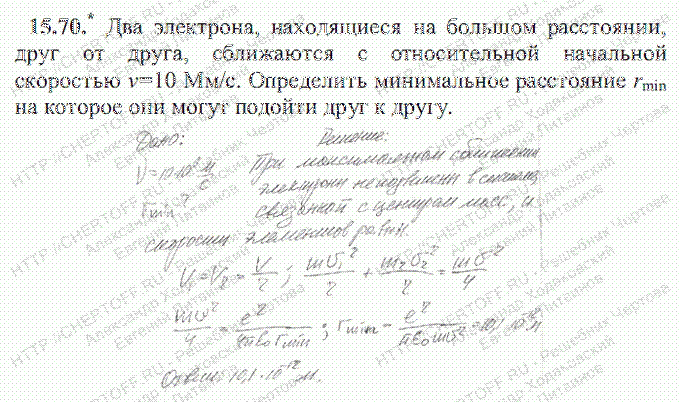 15.70.* Два электрона, находящиеся на большом расстоянии,
друг от друга, сближаются с относительной начальной
скоростью v=10 Мм/с. Определить минимальное расстояние rmin
на которое они могут подойти друг к другу.
Дано: Решение:
При максимальном сближении
электроны неподвижны в системе
rmin ? связанной с центром масс, и
скорости элементов равны.
V₁=V₂= V/2 ; mυ₁²/2 + m₂υ₂²/2 = mυ²/4
mυ²/4 = e²/4πε₀rmin ; rmin = e²/πε₀mυ² = 10,1·10⁻¹² м
Ответ: 10,1·10⁻¹² м.
HTTP://CHERTOFF.RU - Решебник Чертова
Александр Ходаковский
Евгений Литвинов